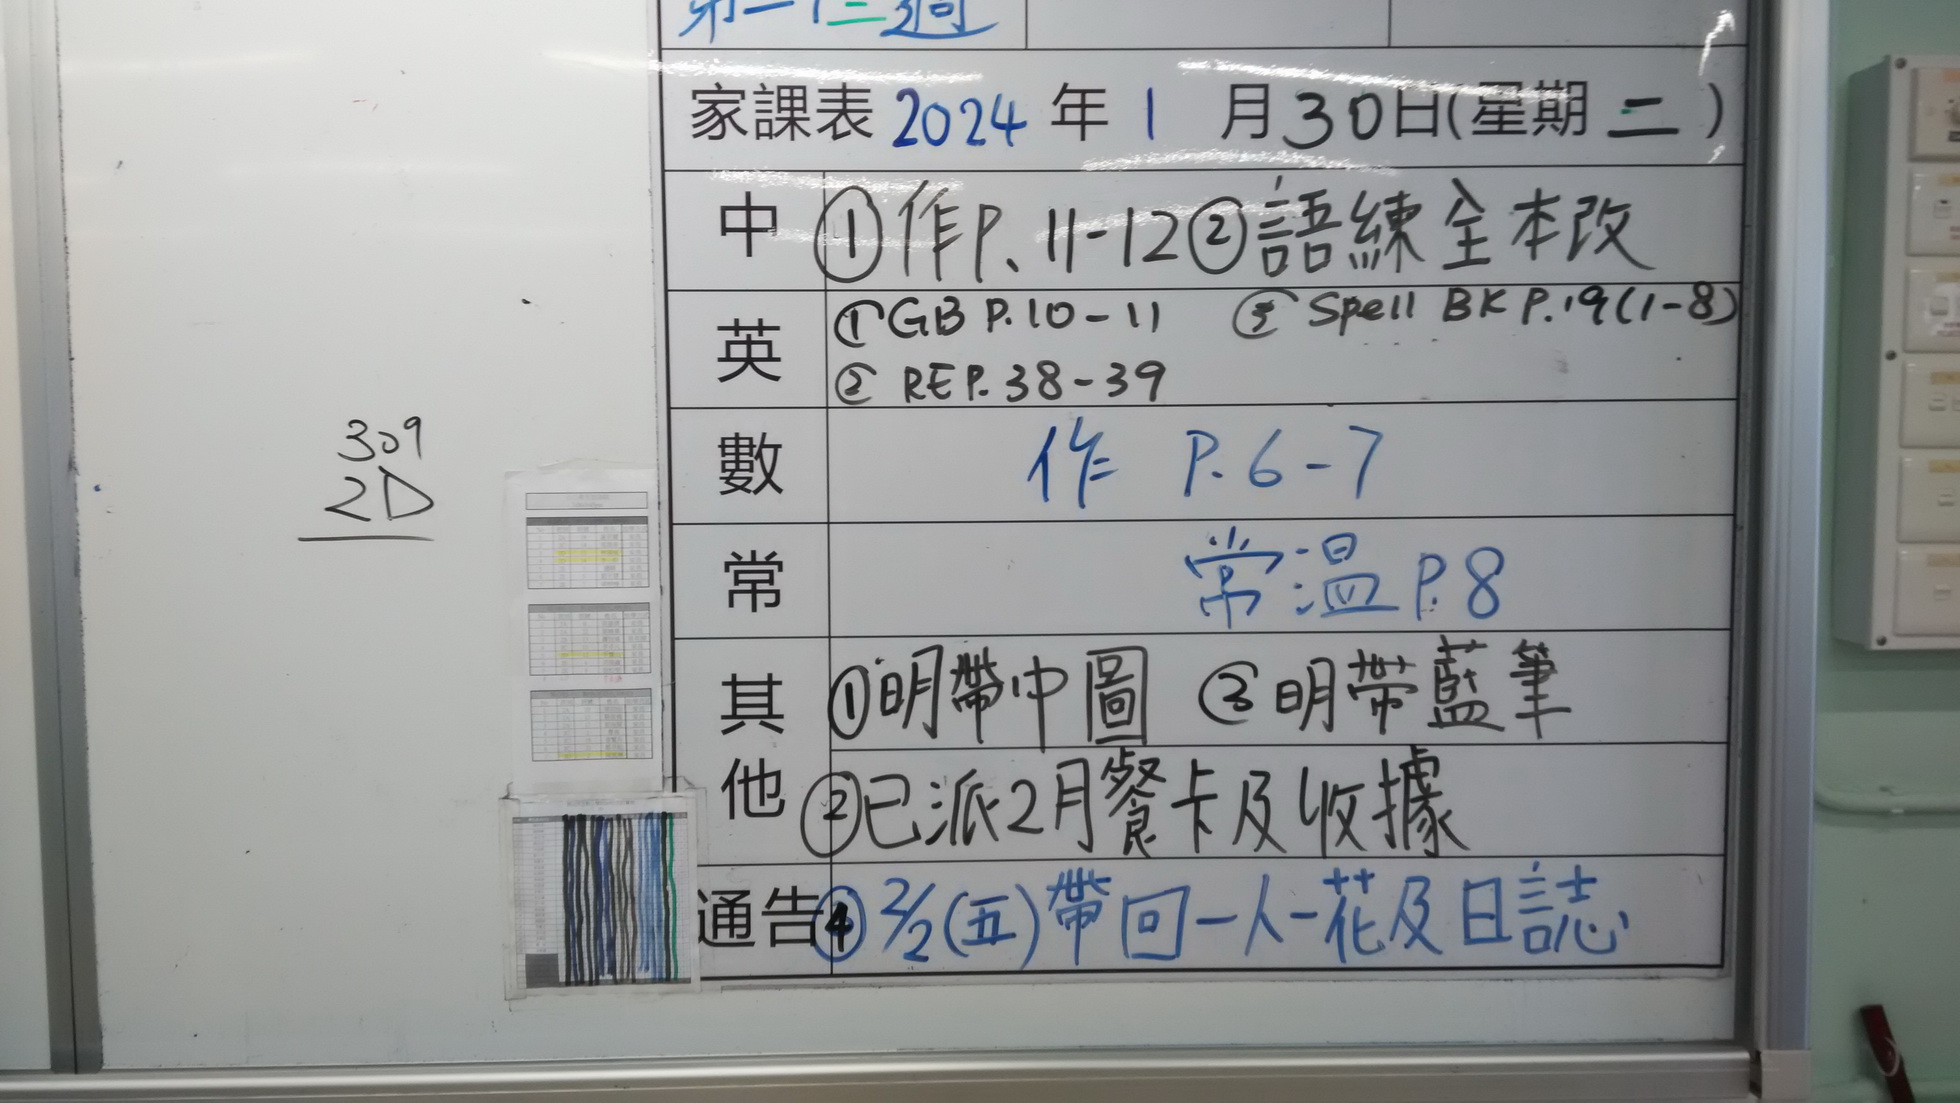 第二十三週
家課表 2024 年 1 月 30 日(星期 二 )
中 ①作P.11-12 ②語練全本改
英 ①GB P.10-11 ③ Spell BK P.19(1-8)
② RE P.38-39
數 作 P.6-7
常 常溫 P.8
其他 ①明帶中圖 ③明帶藍筆
②已派2月餐卡及收據
通告 ④ 2/2(五)帶回一人一花及日誌
309
2D